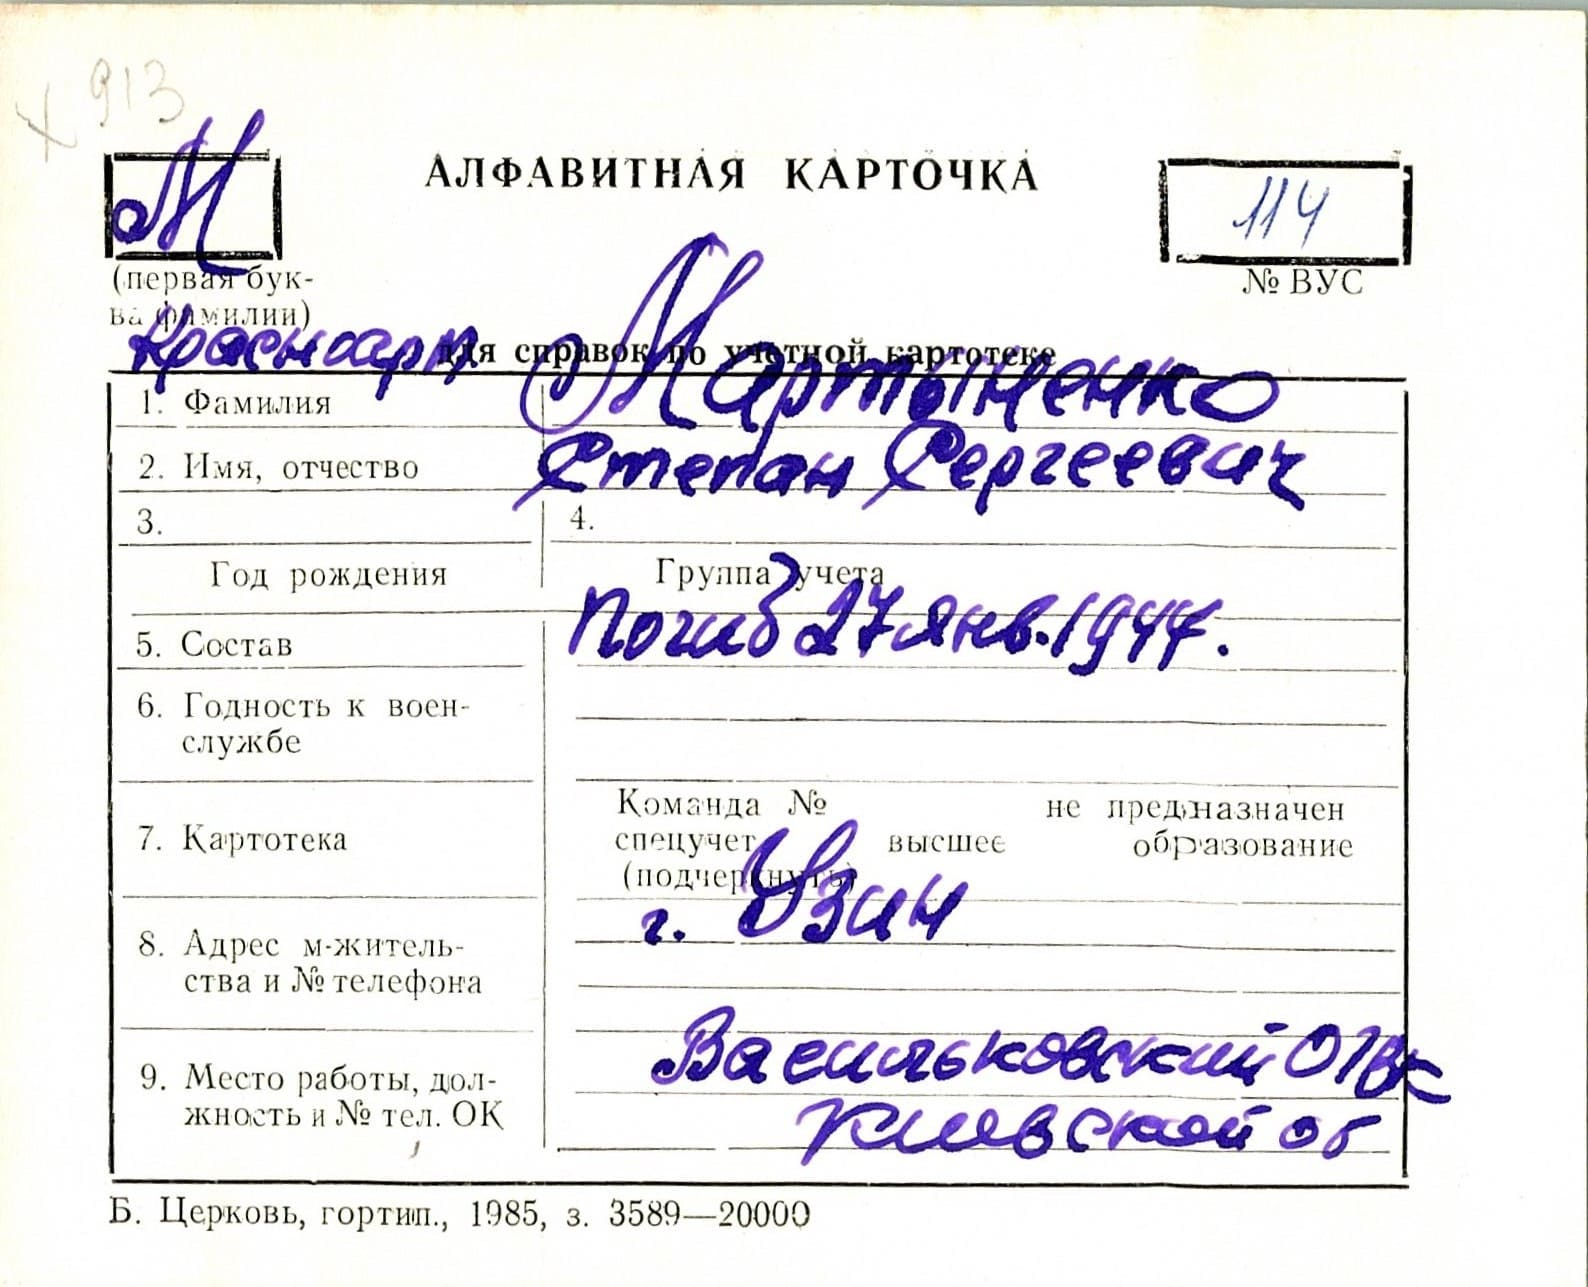 х 913
М
АЛФАВИТНАЯ КАРТОЧКА
114
(первая бук-
ва фамилии)
№ ВУС
Красноарм
для справок по учетной картотеке
1. Фамилия Мартыненко
2. Имя, отчество Степан Сергеевич
3. 4.
Год рождения Группа учета
5. Состав Погиб 27 янв. 1944.
6. Годность к воен-
службе
Команда № не предназначен
7. Картотека спецучет высшее образование
(подчеркнуть)
г. Узин
8. Адрес м-житель-
ства и № телефона
Васильковский ОГВК
9. Место работы, дол-
жность и № тел. ОК
Киевской об
Б. Церковь, гортип., 1985, з. 3589—20000